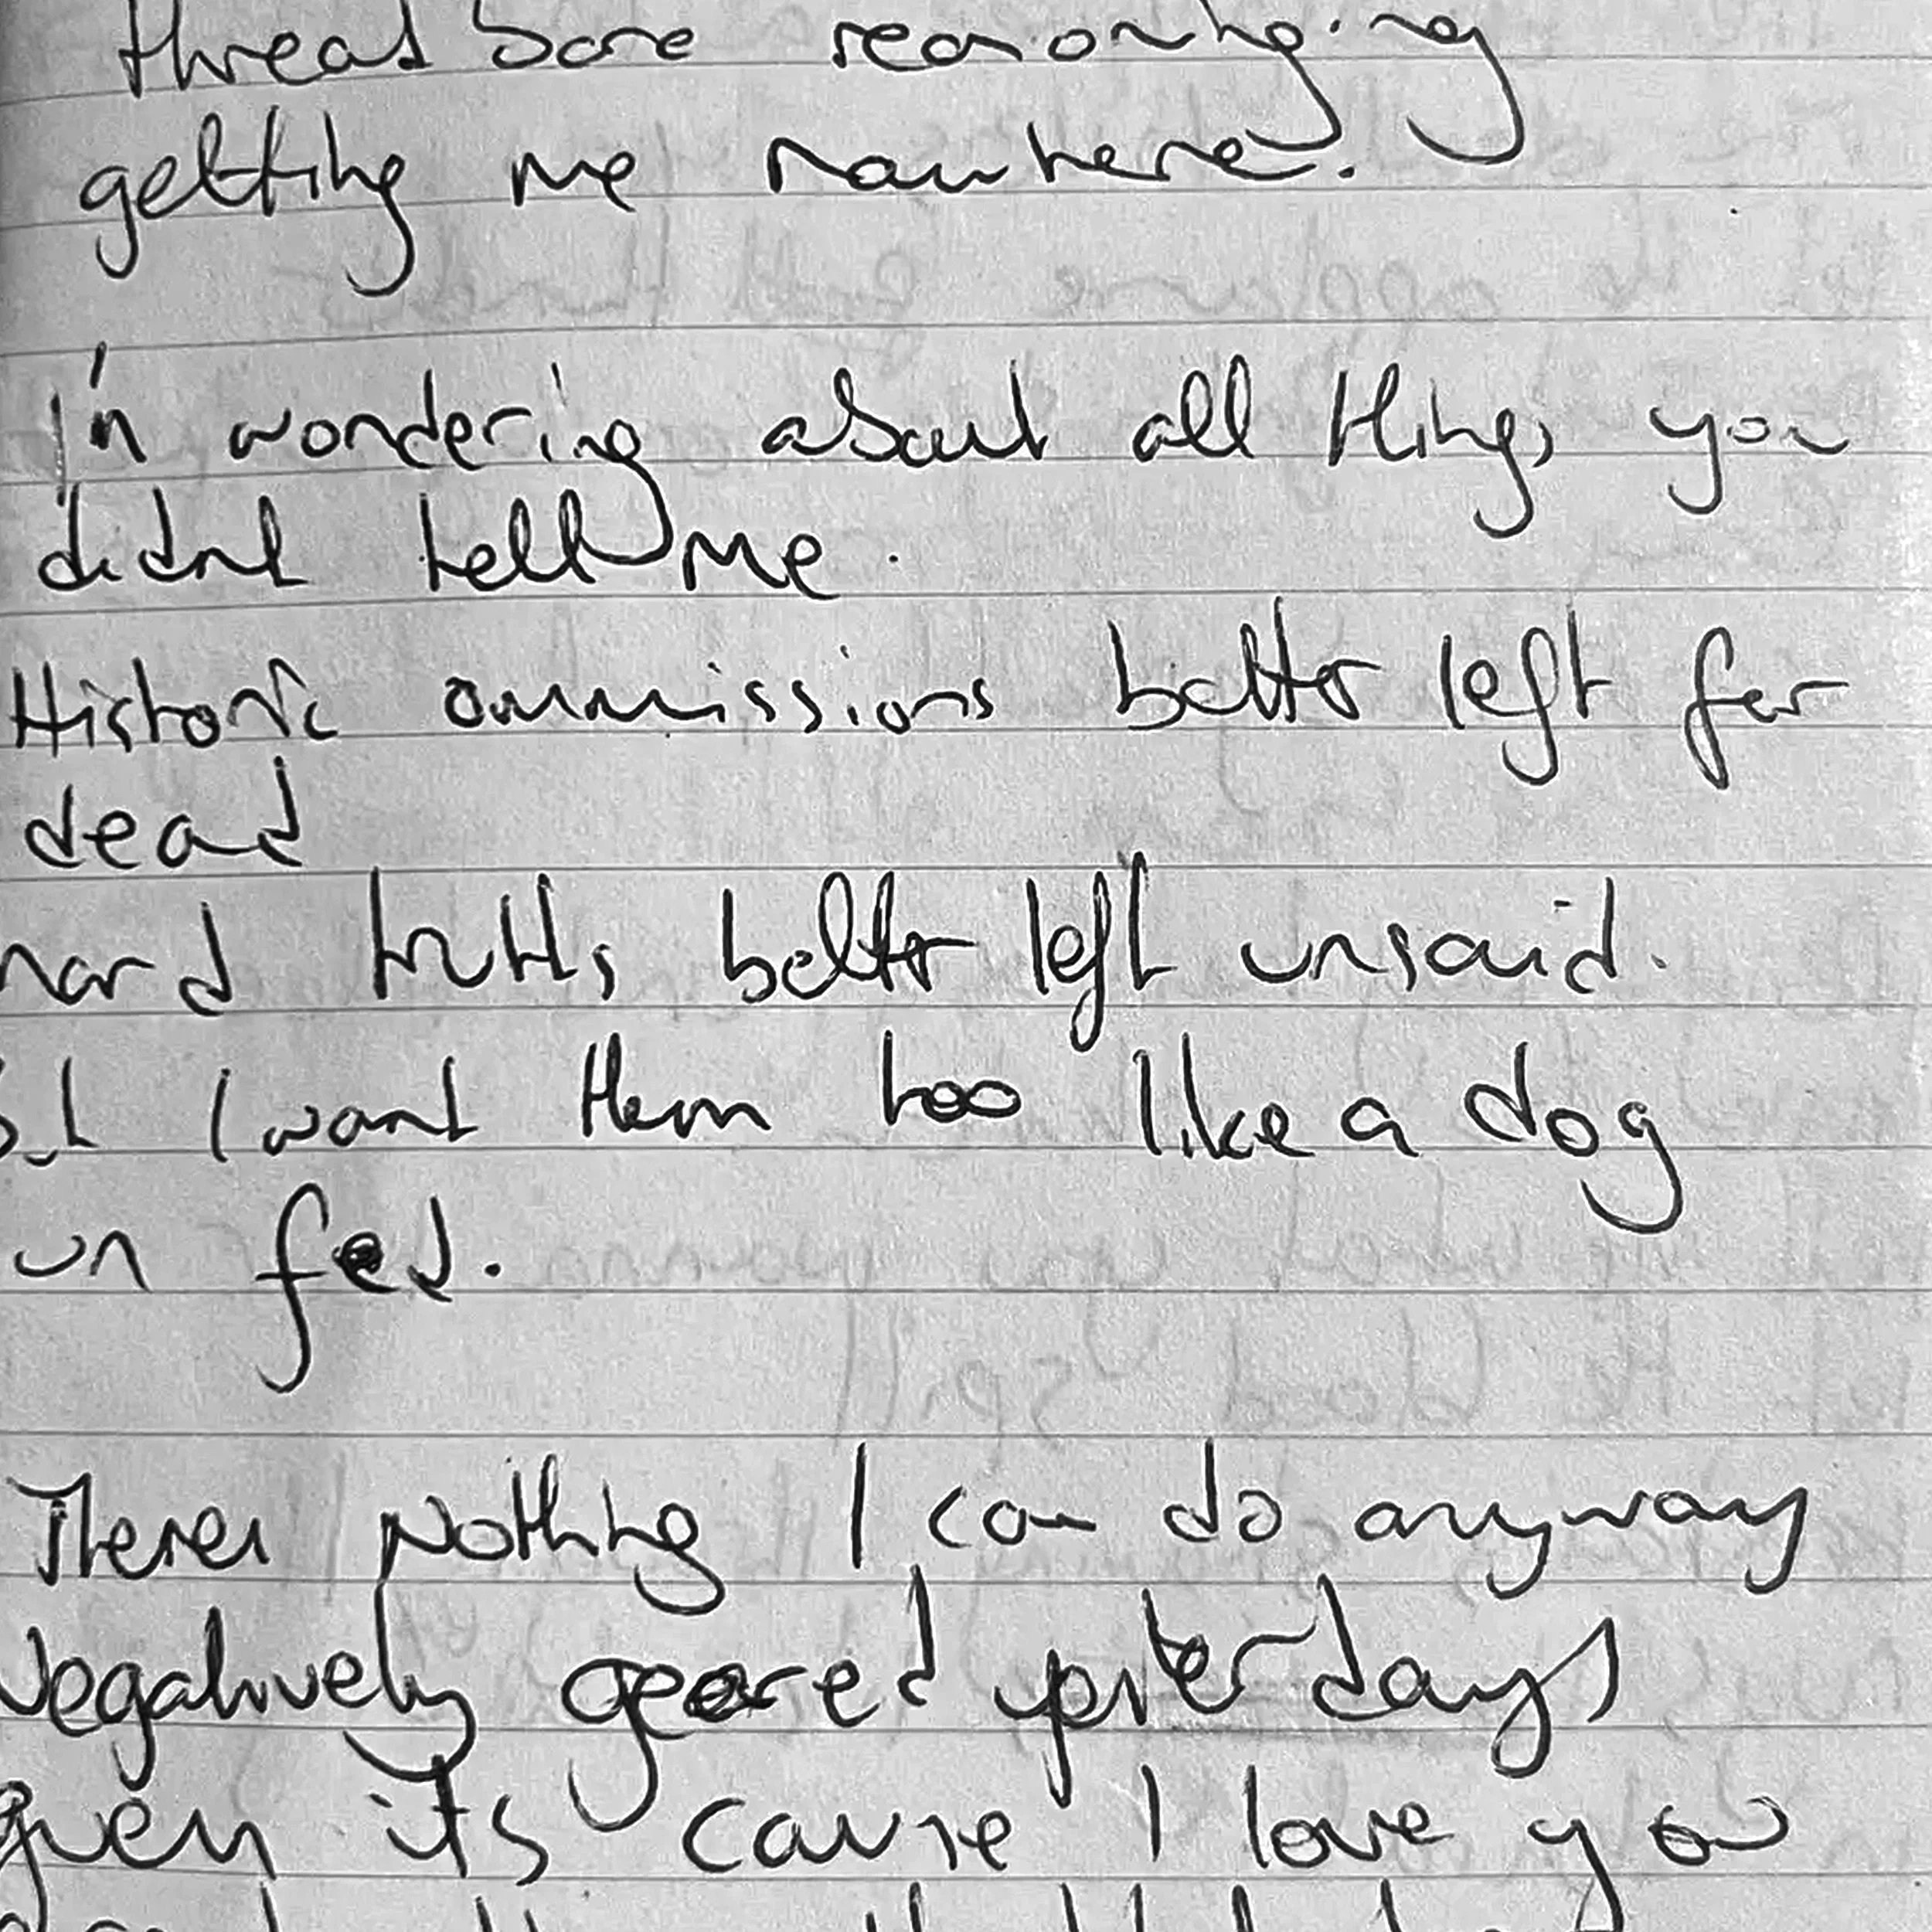 threadbare reasoninging
getting me nowhere.
I'm wondering about all things you
didnt tell me.
Historic ommissions better left for
dead
hard truths better left unsaid.
but I want them too like a dog
un fed.
Theres nothing I can do anyway
Negatively geared yesterdays
given its cause I love you